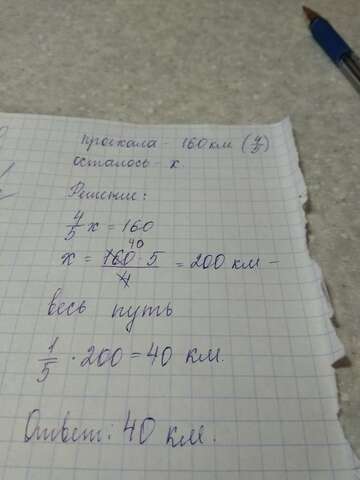 проехала - 160 км (4/5)
осталось - x
Решение:
4/5 x = 160
x = 160 · 5 / 4 = 200 км -
40
весь путь
1/5 · 200 = 40 км.
Ответ: 40 км.